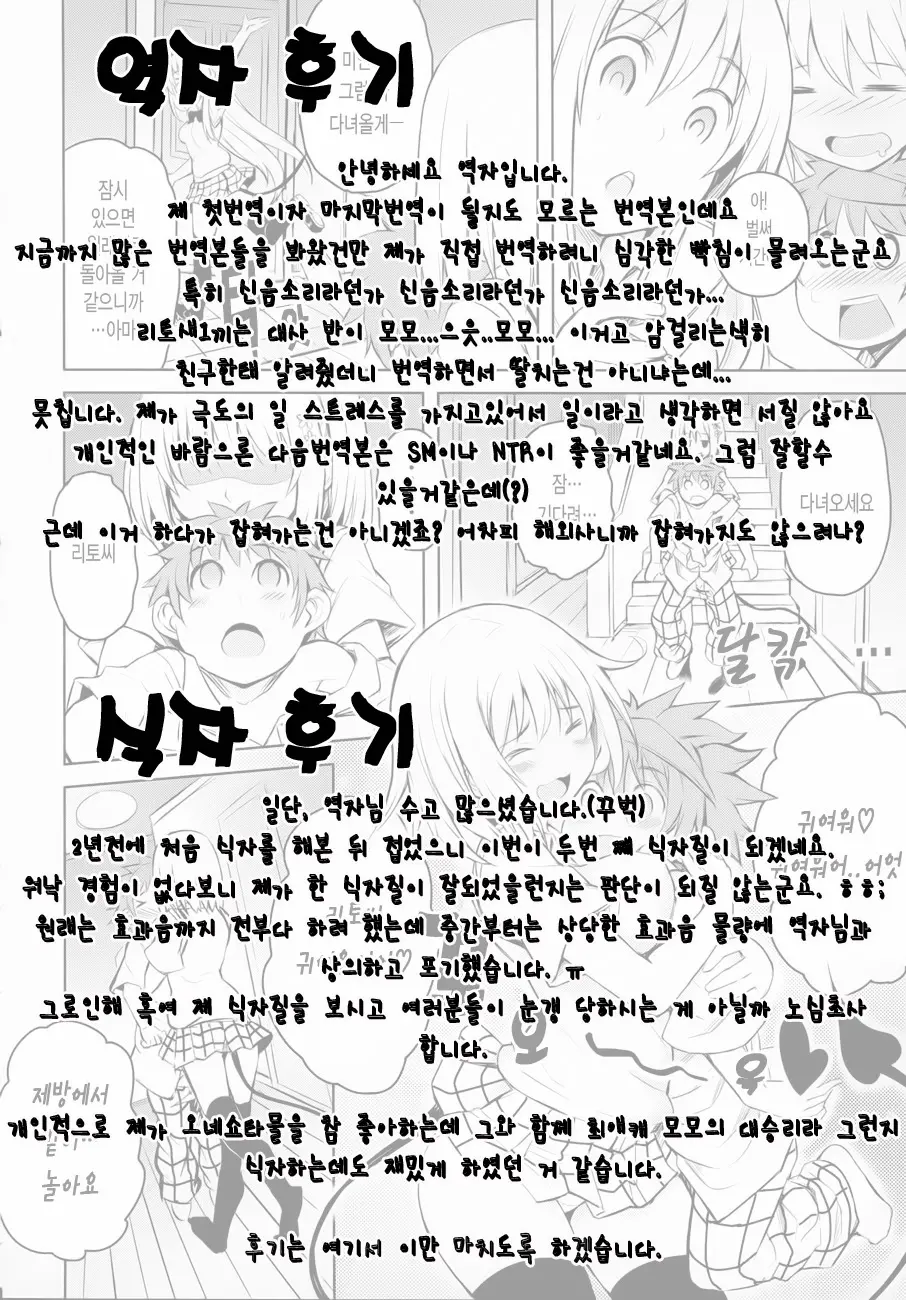 역자 후기
안녕하세요 역자입니다.
제 첫번역이자 마지막번역이 될지도 모르는 번역본인데요
지금까지 많은 번역본들을 봐왔건만 제가 직접 번역하려니 심각한 빡침이 몰려오는군요
특히 신음소리라던가 신음소리라던가 신음소리라던가...
리토새1끼는 대사 반이 모모...으읏..모모... 이거고 암걸리는색히
친구한태 알려줬더니 번역하면서 딸치는건 아니냐는데...
못칩니다. 제가 극도의 일 스트레스를 가지고있어서 일이라고 생각하면 서질 않아요
개인적인 바람으론 다음번역본은 SM이나 NTR이 좋을거같네요. 그럼 잘할수
있을거같은데(?)
근데 이거 하다가 잡혀가는건 아니겠죠? 어차피 해외사니까 잡혀가지도 않으려나?
식자 후기
일단, 역자님 수고 많으셨습니다.(꾸벅)
2년전에 처음 식자를 해본 뒤 접었으니 이번이 두번 째 식자질이 되겠네요.
워낙 경험이 없다보니 제가 한 식자질이 잘되었을런지는 판단이 되질 않는군요. ㅎㅎ;
원래는 효과음까지 전부다 하려 했는데 중간부터는 상당한 효과음 물량에 역자님과
상의하고 포기했습니다. ㅠ
그로인해 혹여 제 식자질을 보시고 여러분들이 눈갱 당하시는 게 아닐까 노심초사
합니다.
개인적으로 제가 오네쇼타물을 참 좋아하는데 그와 함께 최애캐 모모의 대승리라 그런지
식자하는데도 재밌게 하였던 거 같습니다.
후기는 여기서 이만 마치도록 하겠습니다.
다녀올게ㅡ
아!
벌써
잠시
있으면
돌아올 거
같으니까
…아마
리토씨
잠…
기다려…
다녀오세요
달칵
…
귀여워♡
귀여워어..어엇
리토씨
오
옥
제방에서
같이…
놀아요